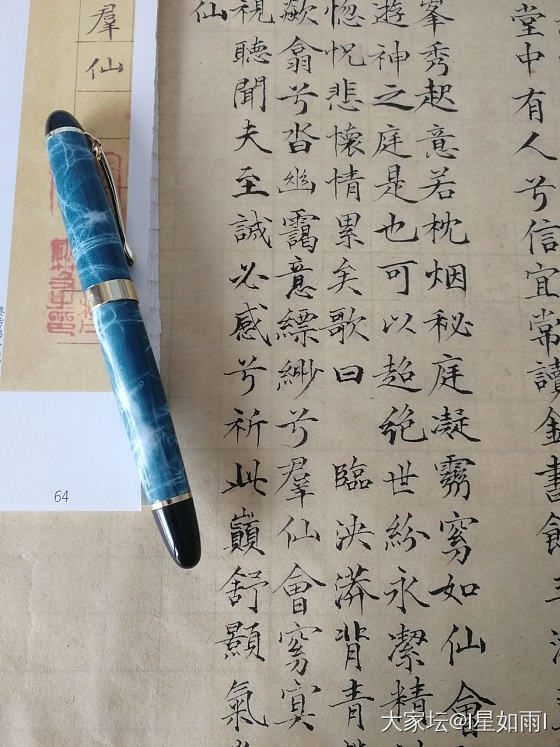 堂中有人兮信宜常讀書
峯秀起意若枕烟秘庭凝霧窅如仙會
遊神之庭是也可以超絕世紛永潔精
惚怳悲懷情累矣歌曰 臨泱漭背青
歘翕兮沓幽靄意縹緲兮羣仙會窅冥
視聽聞夫至誠必感兮祈此巔舒顥氣
仙
羣仙
64
大家坛@l星如雨l